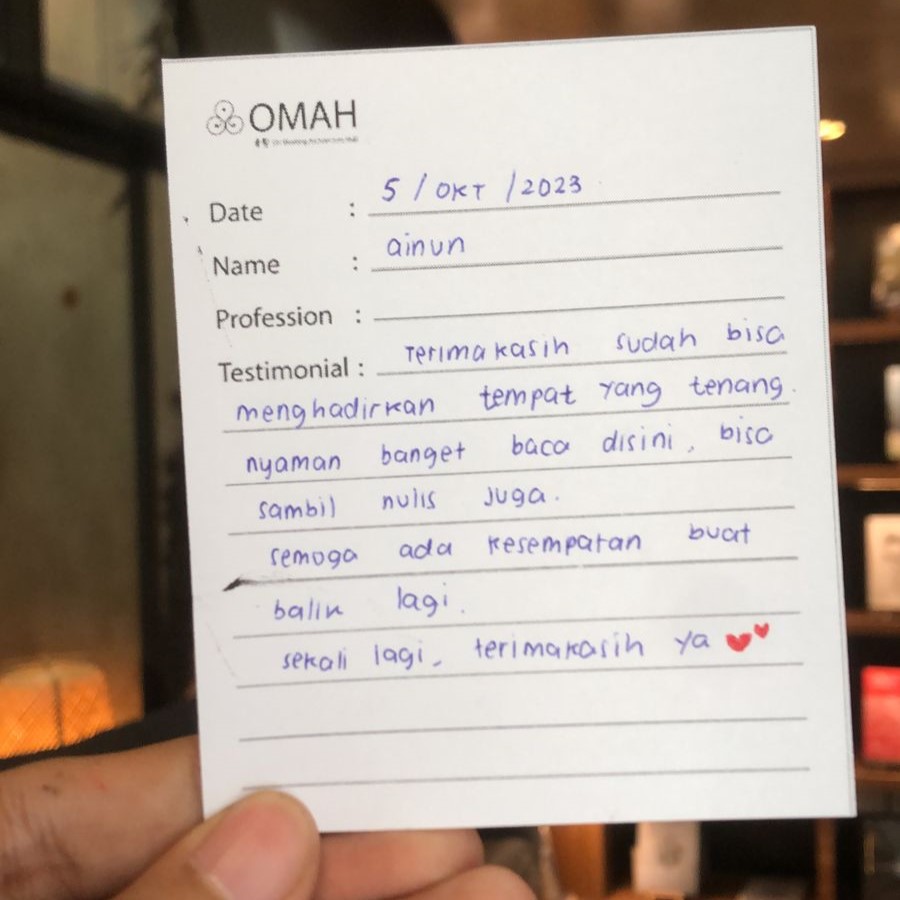 OMAH
Date : 5 / OKT / 2023
Name : ainun
Profession :
Testimonial : Terimakasih sudah bisa
menghadirkan tempat yang tenang.
nyaman banget baca disini, bisa
sambil nulis juga.
semoga ada kesempatan buat
balik lagi.
sekali lagi, terimakasih ya